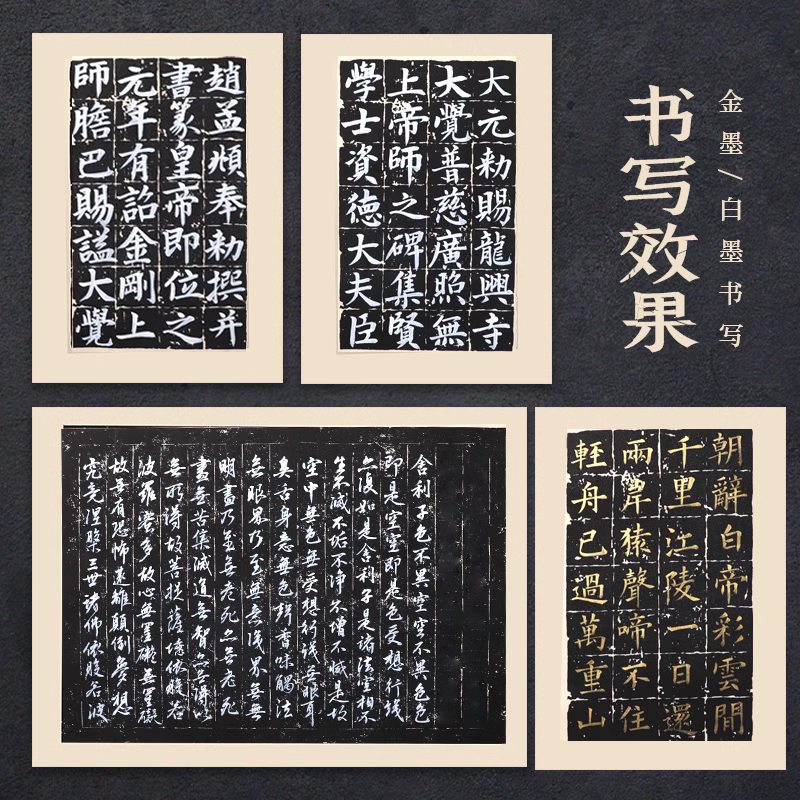 书写效果
金墨/白墨书写
趙孟頫奉勅撰并
書篆皇帝即位之
元年有詔金剛上
師膽巴賜謚大覺
大元勅賜龍興寺
大覺普慈廣照無
上帝師之碑集賢
學士資德大夫臣
舍利子色不異空空不異色色
即是空空即是色受想行識
亦復如是舍利子是諸法空相不
生不滅不垢不淨不增不減是故
空中無色無受想行識無眼耳
鼻舌身意無色聲香味觸法
無眼界乃至無意識界無無
明盡乃至無老死亦無老死
盡無苦集滅道無智亦無得以
無所得故菩提薩埵依般若
波羅蜜多故心無罣礙無罣礙
故無有恐怖遠離顛倒夢想
究竟涅槃三世諸佛依般若波
朝辭白帝彩雲間
千里江陵一日還
兩岸猿聲啼不住
輕舟已過萬重山